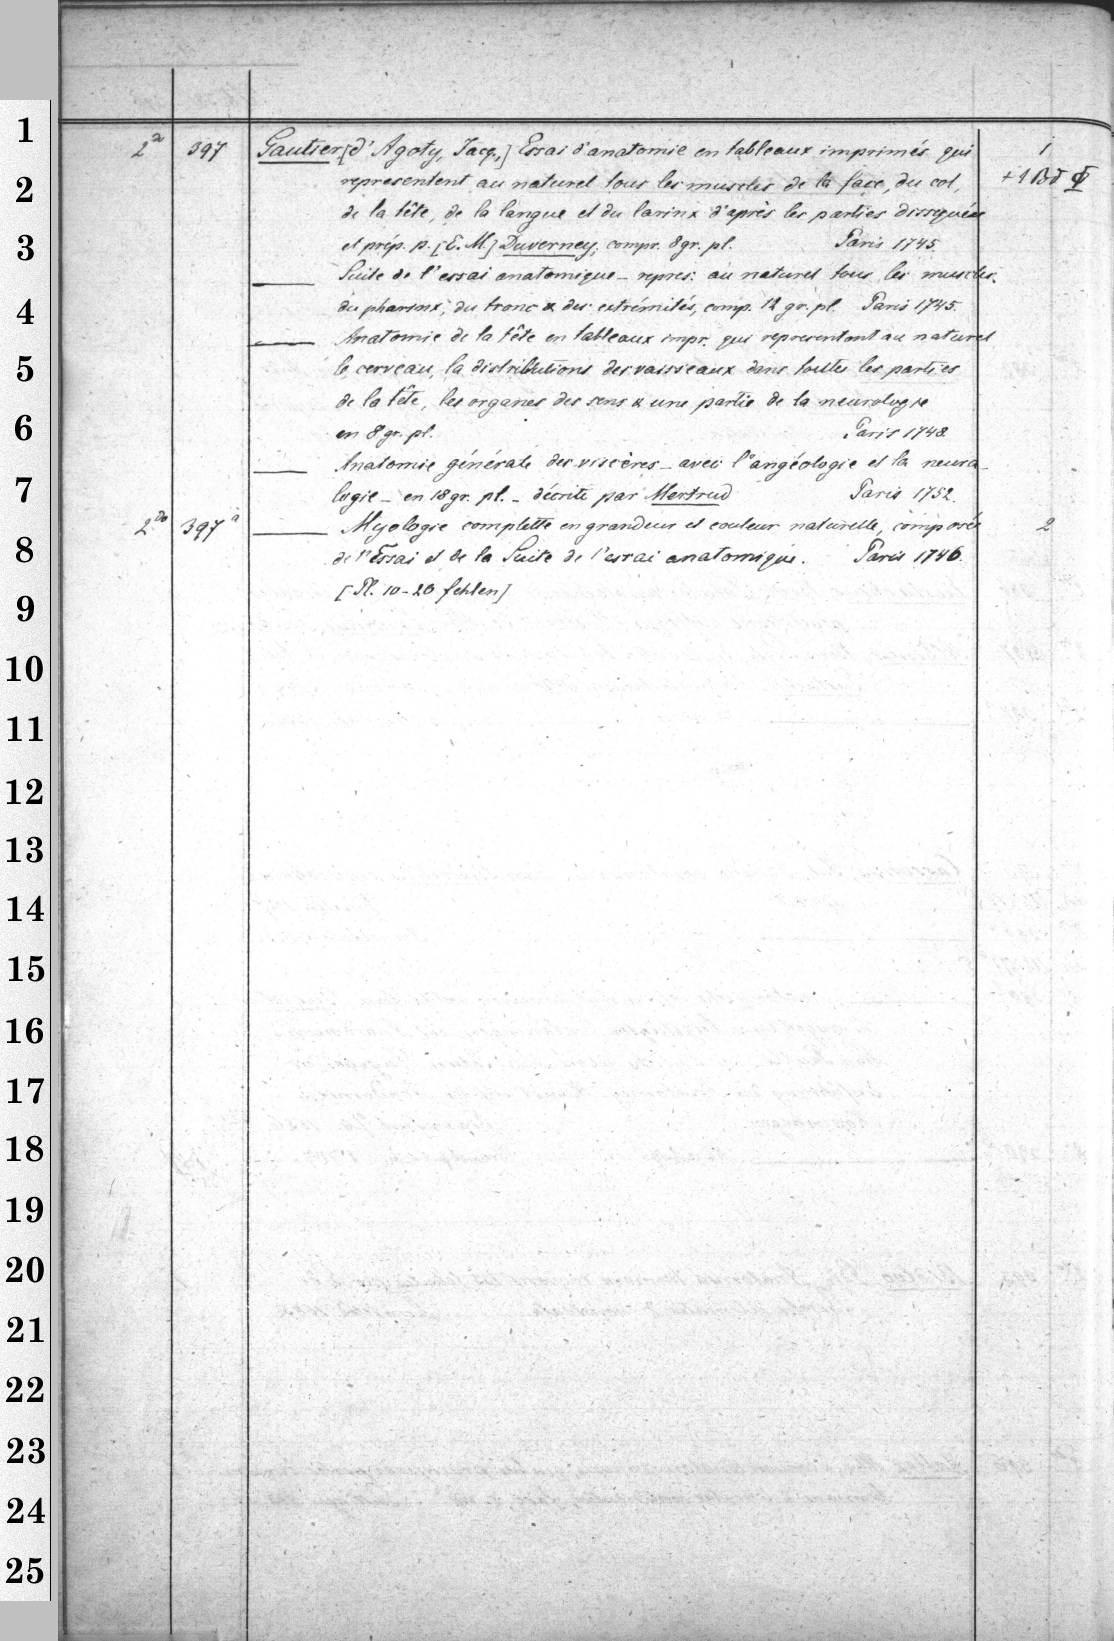 1
2
3
4
5
6
7
8
9
10
11
12
13
14
15
16
17
18
19
20
21
22
23
24
25
2° 397 Gautier [d'Agoty, Jacq.,] Essai d'anatomie en tableaux imprimés qui 1
representent au naturel tous les muscles de la face, du col, + 1 Bd
de la tête, de la langue et du larinx d'après les parties dissequées
et prép. p. [E. M.] Duverney, compr. 8 gr. pl. Paris 1745.
— Suite de l'essai anatomique — repres. au naturel tous les muscles
du pharinx, du tronc & des extrémités, comp. 12 gr. pl. Paris 1745.
— Anatomie de la tête en tableaux impr. qui representent au naturel
le cerveau, la distributions des vaisseaux dans toutes les parties
de la tête, les organes des sens & une partie de la neurologie
en 8 gr. pl. Paris 1748
— Anatomie générale des viscères — avec l'angéologie et la neuro-
logie — en 18 gr. pl. — décrite par Mertrud Paris 1752.
2° 397 a — Myologie complette en grandeur et couleur naturelle, composée 2
de l'Essai et de la Suite de l'essai anatomique. Paris 1746.
[Pl. 10-20 fehlen]